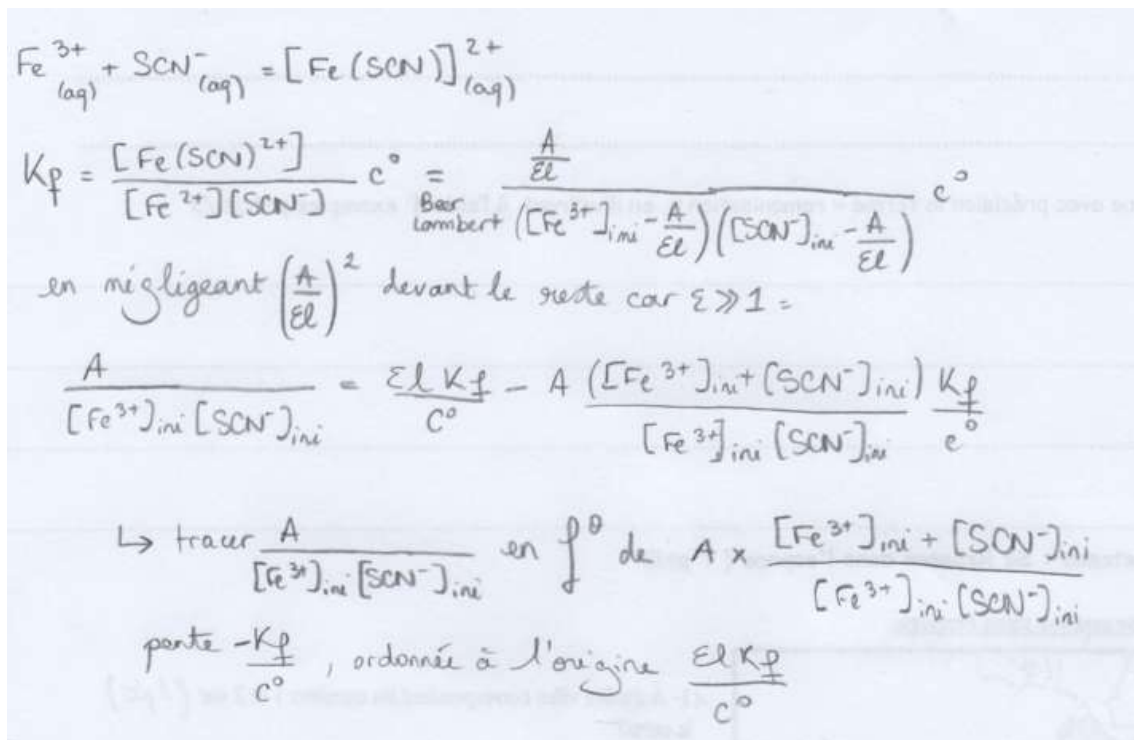 Fe³⁺(aq) + SCN⁻(aq) = [Fe(SCN)]²⁺(aq)
Kf = [Fe(SCN)²⁺] / ([Fe²⁺][SCN⁻]) c° = (Bee Lambert) (A/εl) / (([Fe³⁺]ini - A/εl)([SCN⁻]ini - A/εl)) c°
en négligeant (A/εl)² devant le reste car ε ≫ 1 =
A / ([Fe³⁺]ini [SCN⁻]ini) = εl Kf / c° - A ([Fe³⁺]ini + [SCN⁻]ini) / ([Fe³⁺]ini [SCN⁻]ini) Kf / c°
↳ tracer A / ([Fe³⁺]ini [SCN⁻]ini) en f° de A × ([Fe³⁺]ini + [SCN⁻]ini) / ([Fe³⁺]ini [SCN⁻]ini)
pente -Kf / c°, ordonnée à l'origine εl Kf / c°